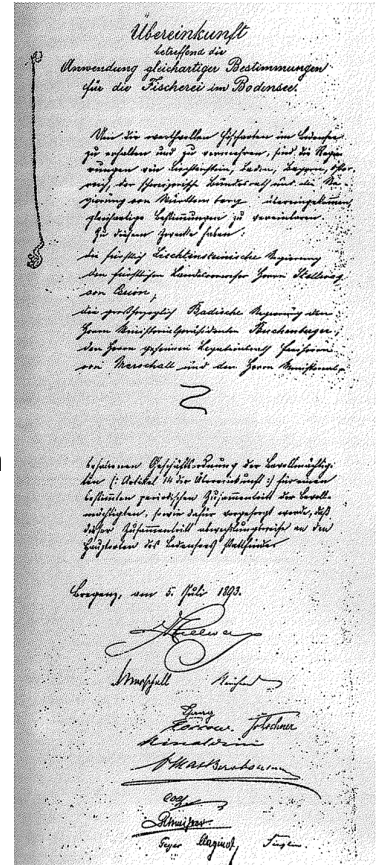 Übereinkunft
betreffend die
Anwendung gleichartiger Bestimmungen
für die Fischerei im Bodensee.
Um die werthvollen Fischarten im Bodensee
zu erhalten und zu vermehren, sind die Regie-
rungen von Liechtenstein, Baden, Bayern, Öster-
reich, der schweizerische Bundesrath und die Re-
gierung von Württemberg übereingekommen
gleichartige Bestimmungen zu vereinbaren.
Zu diesem Zwecke haben:
die fürstlich Liechtensteinische Regierung
den fürstlichen Landesverweser Herrn
von
die großherzoglich Badische Regierung den
Herrn Ministerialpräsidenten
den Herrn geheimen Legationsrath Freiherrn
von Marschall und den Herrn Ministerial-
Geschäftsordnung der Bevollmächtig-
ten (: Artikel 14 der Übereinkunft :) für einen
bestimmten periodischen Zusammentritt der Bevoll-
mächtigten, sowie dafür vorgesorgt werde, daß
dieser Zusammentritt abwechslungsweise an den
Hauptorten des Bodensees stattfinde.
Bregenz, am 5. Juli 1893.
Marschall